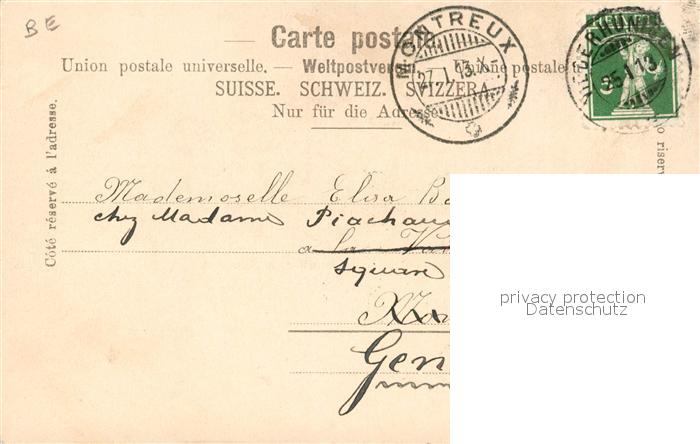 BE
Carte postale.
Union postale universelle. — Weltpostverein. — Unione postale
SUISSE. SCHWEIZ. SVIZZERA.
Nur für die Adresse
MONTREUX
27.I.13.X-
25.I.13
Côté réservé à l'adresse.
Mademoselle Elisa
chez Madame
a la
Square
Gen
privacy protection
Datenschutz